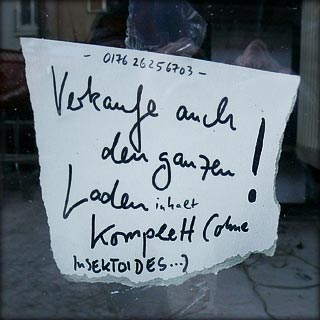 - 0176 26256703 -
Verkaufe auch
den ganzen !
Laden inhalt
Komplett (ohne
INSEKTOIDES...)